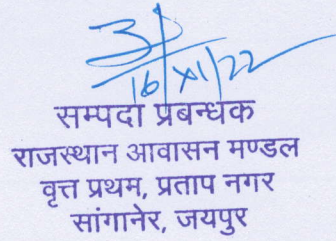 16/XI/22
सम्पदा प्रबन्धक
राजस्थान आवासन मण्डल
वृत्त प्रथम, प्रताप नगर
सांगानेर, जयपुर